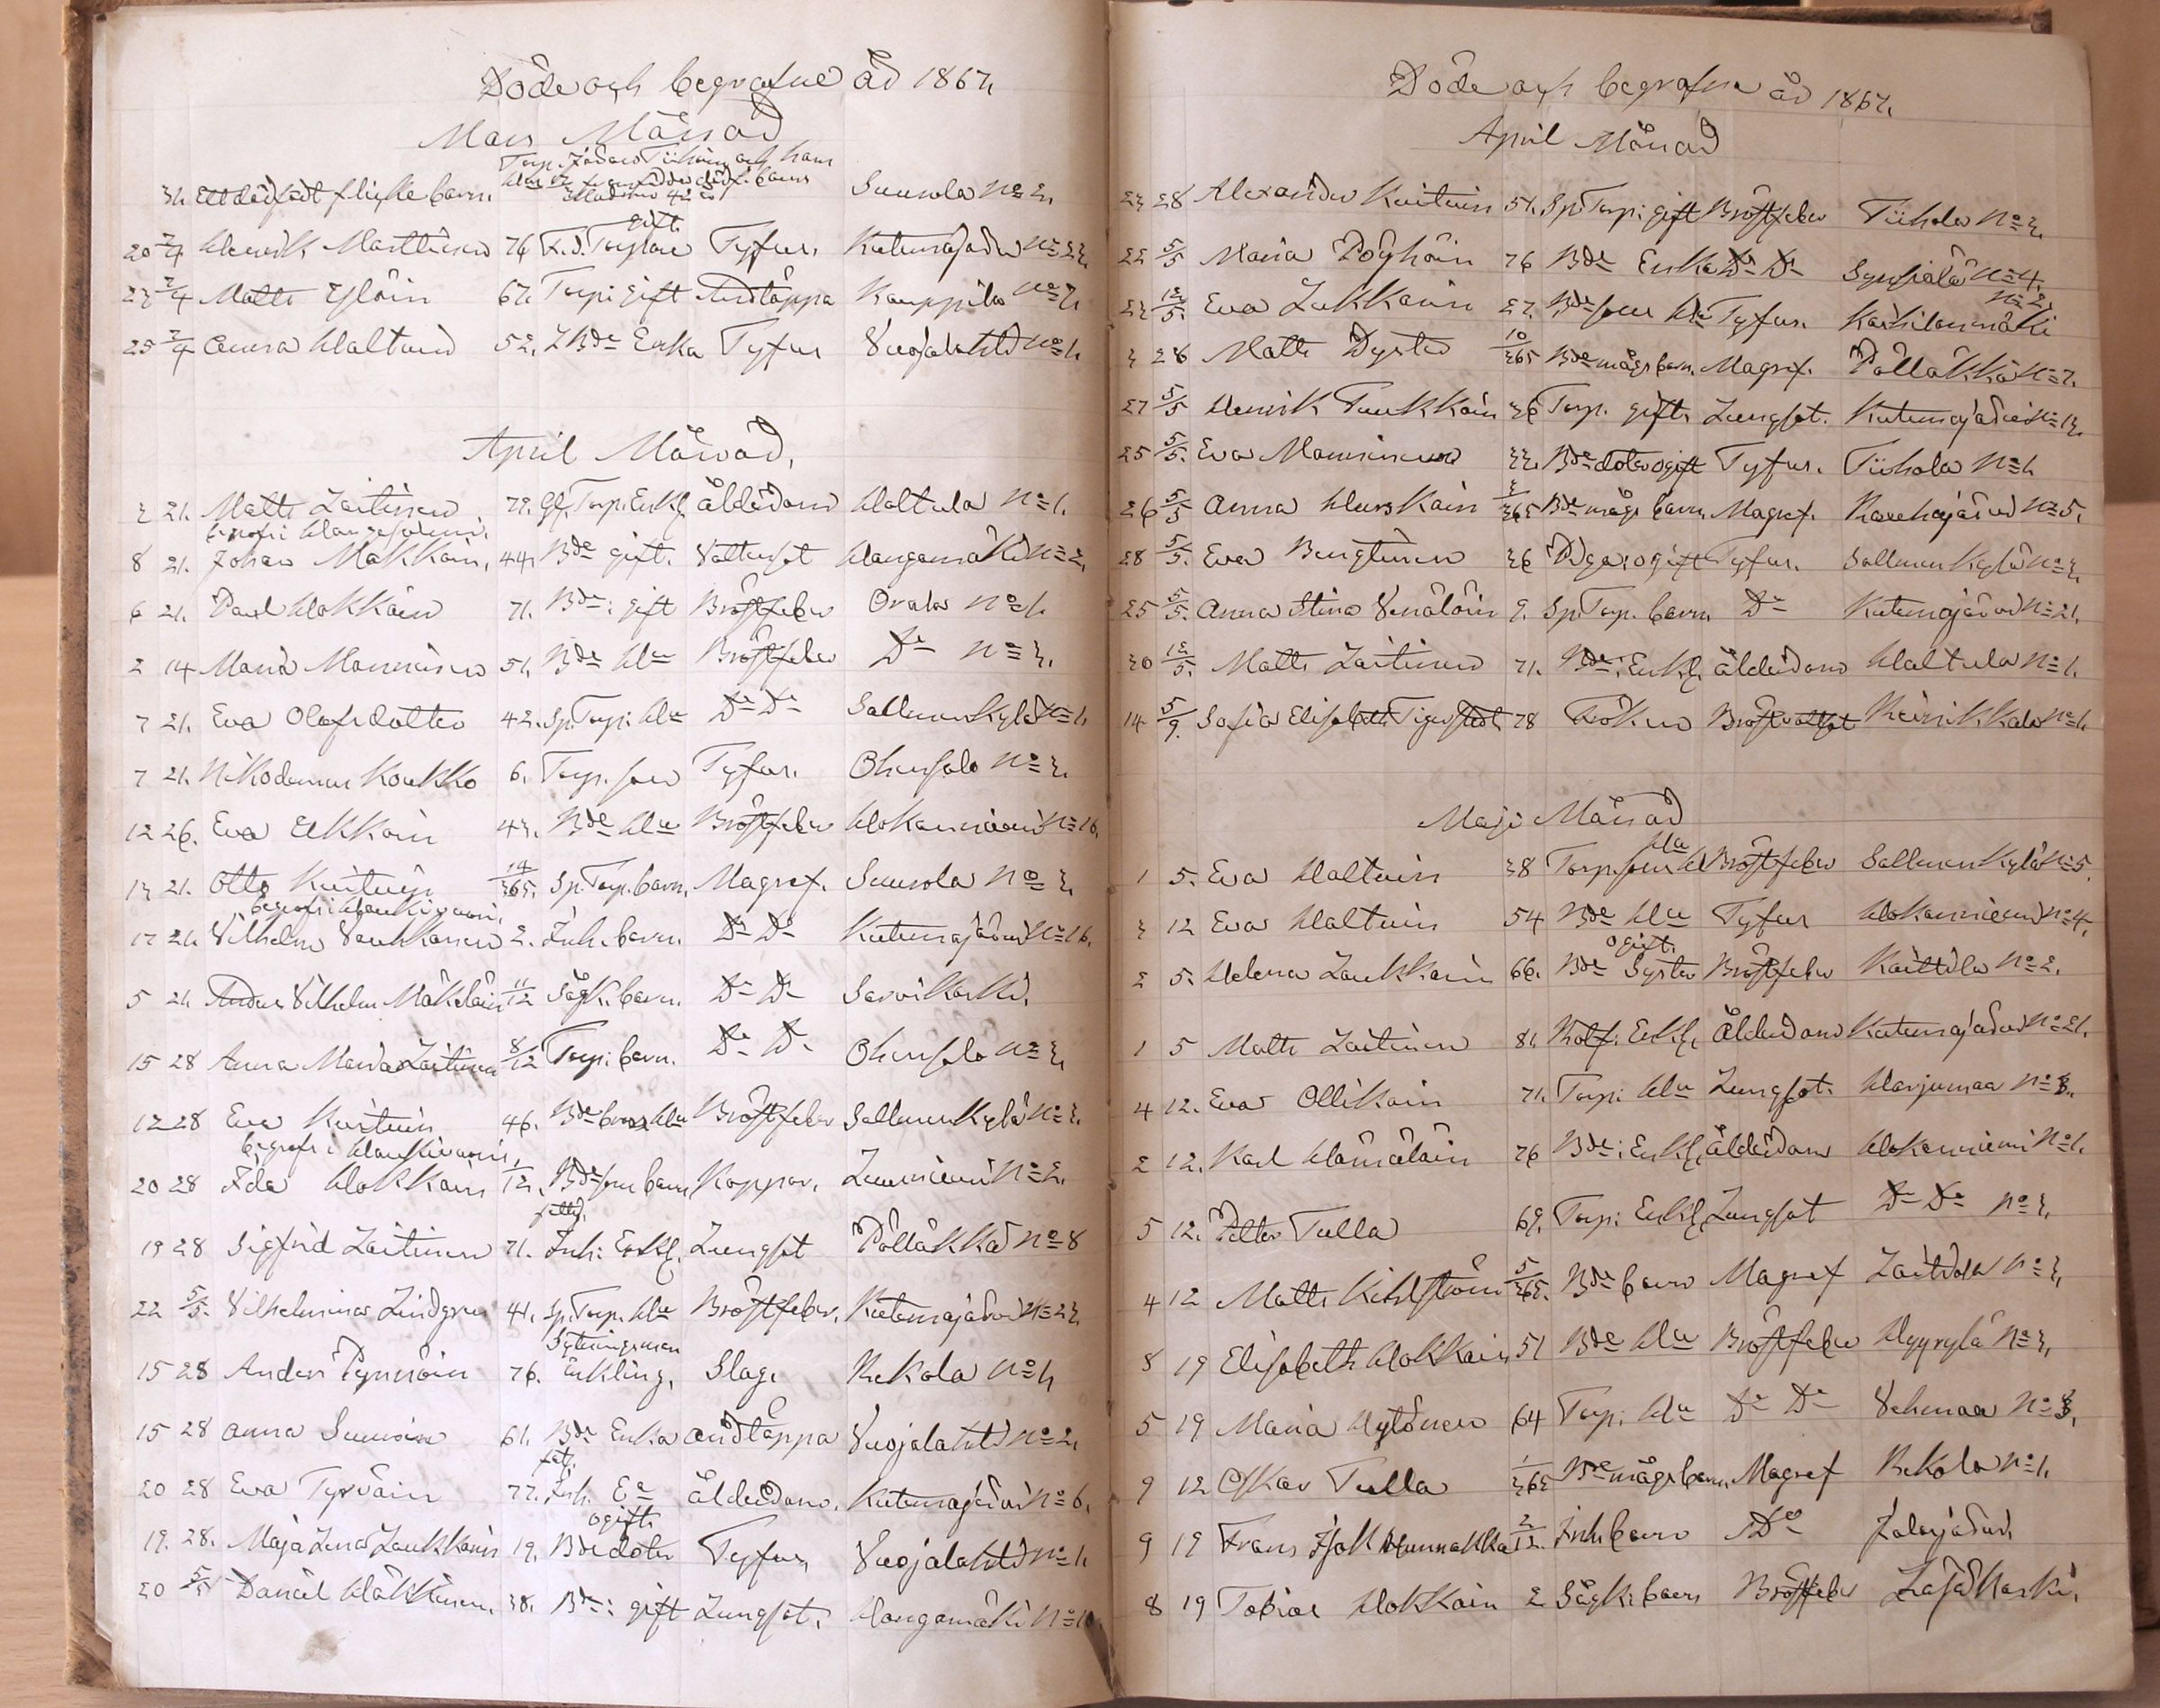 Döde och begrafne år 1867,
Mars Månad
31. Ett dödfödt flicke barn. Suurola No 2,
20 7/4 Henrik Marttinen 76 F.d. Torpare gift Tyfus, Kutemajärvi No 23,
23 7/4 Matts Ylöin 67. Torp: gift Andtäppa Kauppila No 7,
25 7/4 Anna Haltuin 52, Bde Enka Tyfus Vuojalahti No 1,
April Månad,
3 21. Matts Laitinen, 79. Enkl. ålderdom Haltula No 1.
8 21. Johan Makkoin, 44, Bde gift. Vattusot Hangamäki No 2,
6 21. Paul Hokkain 71. Bde: gift Bröstfeber Orala No 1.
2 14 Maria Manninen 51, Bde Hu Bröstfeber Do No 3.
7 21. Eva Olofsdotter 42. Sp. Torp: Hu Do Do Sallmenkylä No 1,
7 21. Nikodemus Koukko 6. Torp. son Tyfus. Ohensalo No 3.
12 26. Eva Ekkoin 43. Bde Hu Bröstfeber Hokanniemi No 16,
13 21. Otto Kuituin 14/365. Sp. Torp. barn, Magref. Suurola No 3,
begrofs i Hankivuori,
17 21. Vilhelm Vauhkonen 2. Inh. barn. Do Do Kutemajärvi No 16,
5 21. Anders Vilhelm Mäkeläin 11/12 Sågk. barn. Do Do Sarvikoski,
15 28 Anna Maria Laitinen 8/12 Torp: barn. Do Do Ohensalo No 3,
12 28 Eva Kuituin 46. Bde bror Hu Bröstfeber Sallmenkylä No 3.
begrofs i Hankivuori,
20 28 Ida Hokkain 1/12, Bde son barn Koppor, Luuniemi No 2,
19 28 Sigfrid Laitinen 71. Inh: Enkl. Lungsot Pölläkkä No 8
22 5/5. Vilhelmina Lindgren 41, Sp. Torp. Hu Bröstfeber, Kutemajärvi No 23,
15 28 Anders Pynnöin 76. Sytningsman Enkling, Slag, Rekola No 1,
15 28 Anna Summoin 61. Bde Enka andtäppa Vuojalahti No 2,
20 28 Eva Tyrväin 77. Inh. Ea ålderdom, Kutemajärvi No 6,
19. 28. Maja Lena Laukkanin 19. Bde doter ogift, Tyfus, Vuojalahti No 1.
20 5/5 Daniel Häkkinen, 38. Bde: gift Lungsot, Hangamäki No 10
Döde och begrafne år 1867,
April Månad
23 28 Alexander Kuituin 51. Sp: Torp: gift Bröstfeber Tiihola No 3,
22 5/5 Maria Pöyhöin 76 Bde Enka Do Do Synsiälä No 4,
23 12/5. Eva Lukkarin 27. Bde son Hu Tyfus. Karhilanmäki No 2,
3 28 Matts Dyster 10/365 Bde mågs barn, Magref. Pölläkkä No 7.
27 5/5 Henrik Paukkoin 36 Torp. gift, Lungsot. Kutemajärvi No 13,
25 5/5. Eva Manninen 33. Bde doter ogift Tyfus. Tiihola No 1.
26 5/5 Anna Hurskain 3/365 Bde mågs barn, Magref. Rauhajärvi No 5,
28 5/5. Eva Bengtinen 36 Piga: ogift Tyfus. Sallmenkylä No 3,
25 5/5. Anna Stina Venäläin 9. Sp. Torp. barn, Do Kutemajärvi No 21,
30 12/5. Matts Laitinen 71. Bde: Enkl, ålderdom Haltula No 1.
14 5/9. Sofia Elisabeth Tigerstedt 78 Fröken Bröstvattsot Keirikkala No 1.
Maji Månad
1 5. Eva Haltuin 38 Torp. sons Hu Bröstfeber Sallmenkylä No 5.
3 12 Eva Haltuin 54 Bde Hu Tyfus Hokanniemi No 4,
2 5. Helena Laukkarin 66. Bde Syster ogift. Bröstfeber Kaittila No 2.
1 5 Matts Laitinen 81, Enkl, ålderdom Kutemajärvi No 21.
4 12. Eva Ollikain 71. Torp: Hu Lungsot. Harjumaa No 3,
2 12. Karl Hämäläin 76 Bde: Enkl, ålderdom Hokanniemi No 1.
5 12. Petter Tulla 69, Torp: Enkl, Lungsot Do Do No 3,
4 12 Matts Kihlström 5/365. Bde barn Magref Laitiala No 3,
8 19 Elisabeth Hokkain 51 Bde Hu Bröstfeber Hyyrylä No 3,
5 19 Maria Hytönen 64 Torp: Hu Do Do Vehmaa No 3,
9 12 Oskar Tulla 1/365 Bde mågs barn, Magref Rekola No 1.
9 19 Frans Isak Hunnakka 2/12 Inh. barn Do Jalasjärvi,
8 19 Tobias Hokkain 2 Sågk: barn Bröstfeber Läsäkoski,